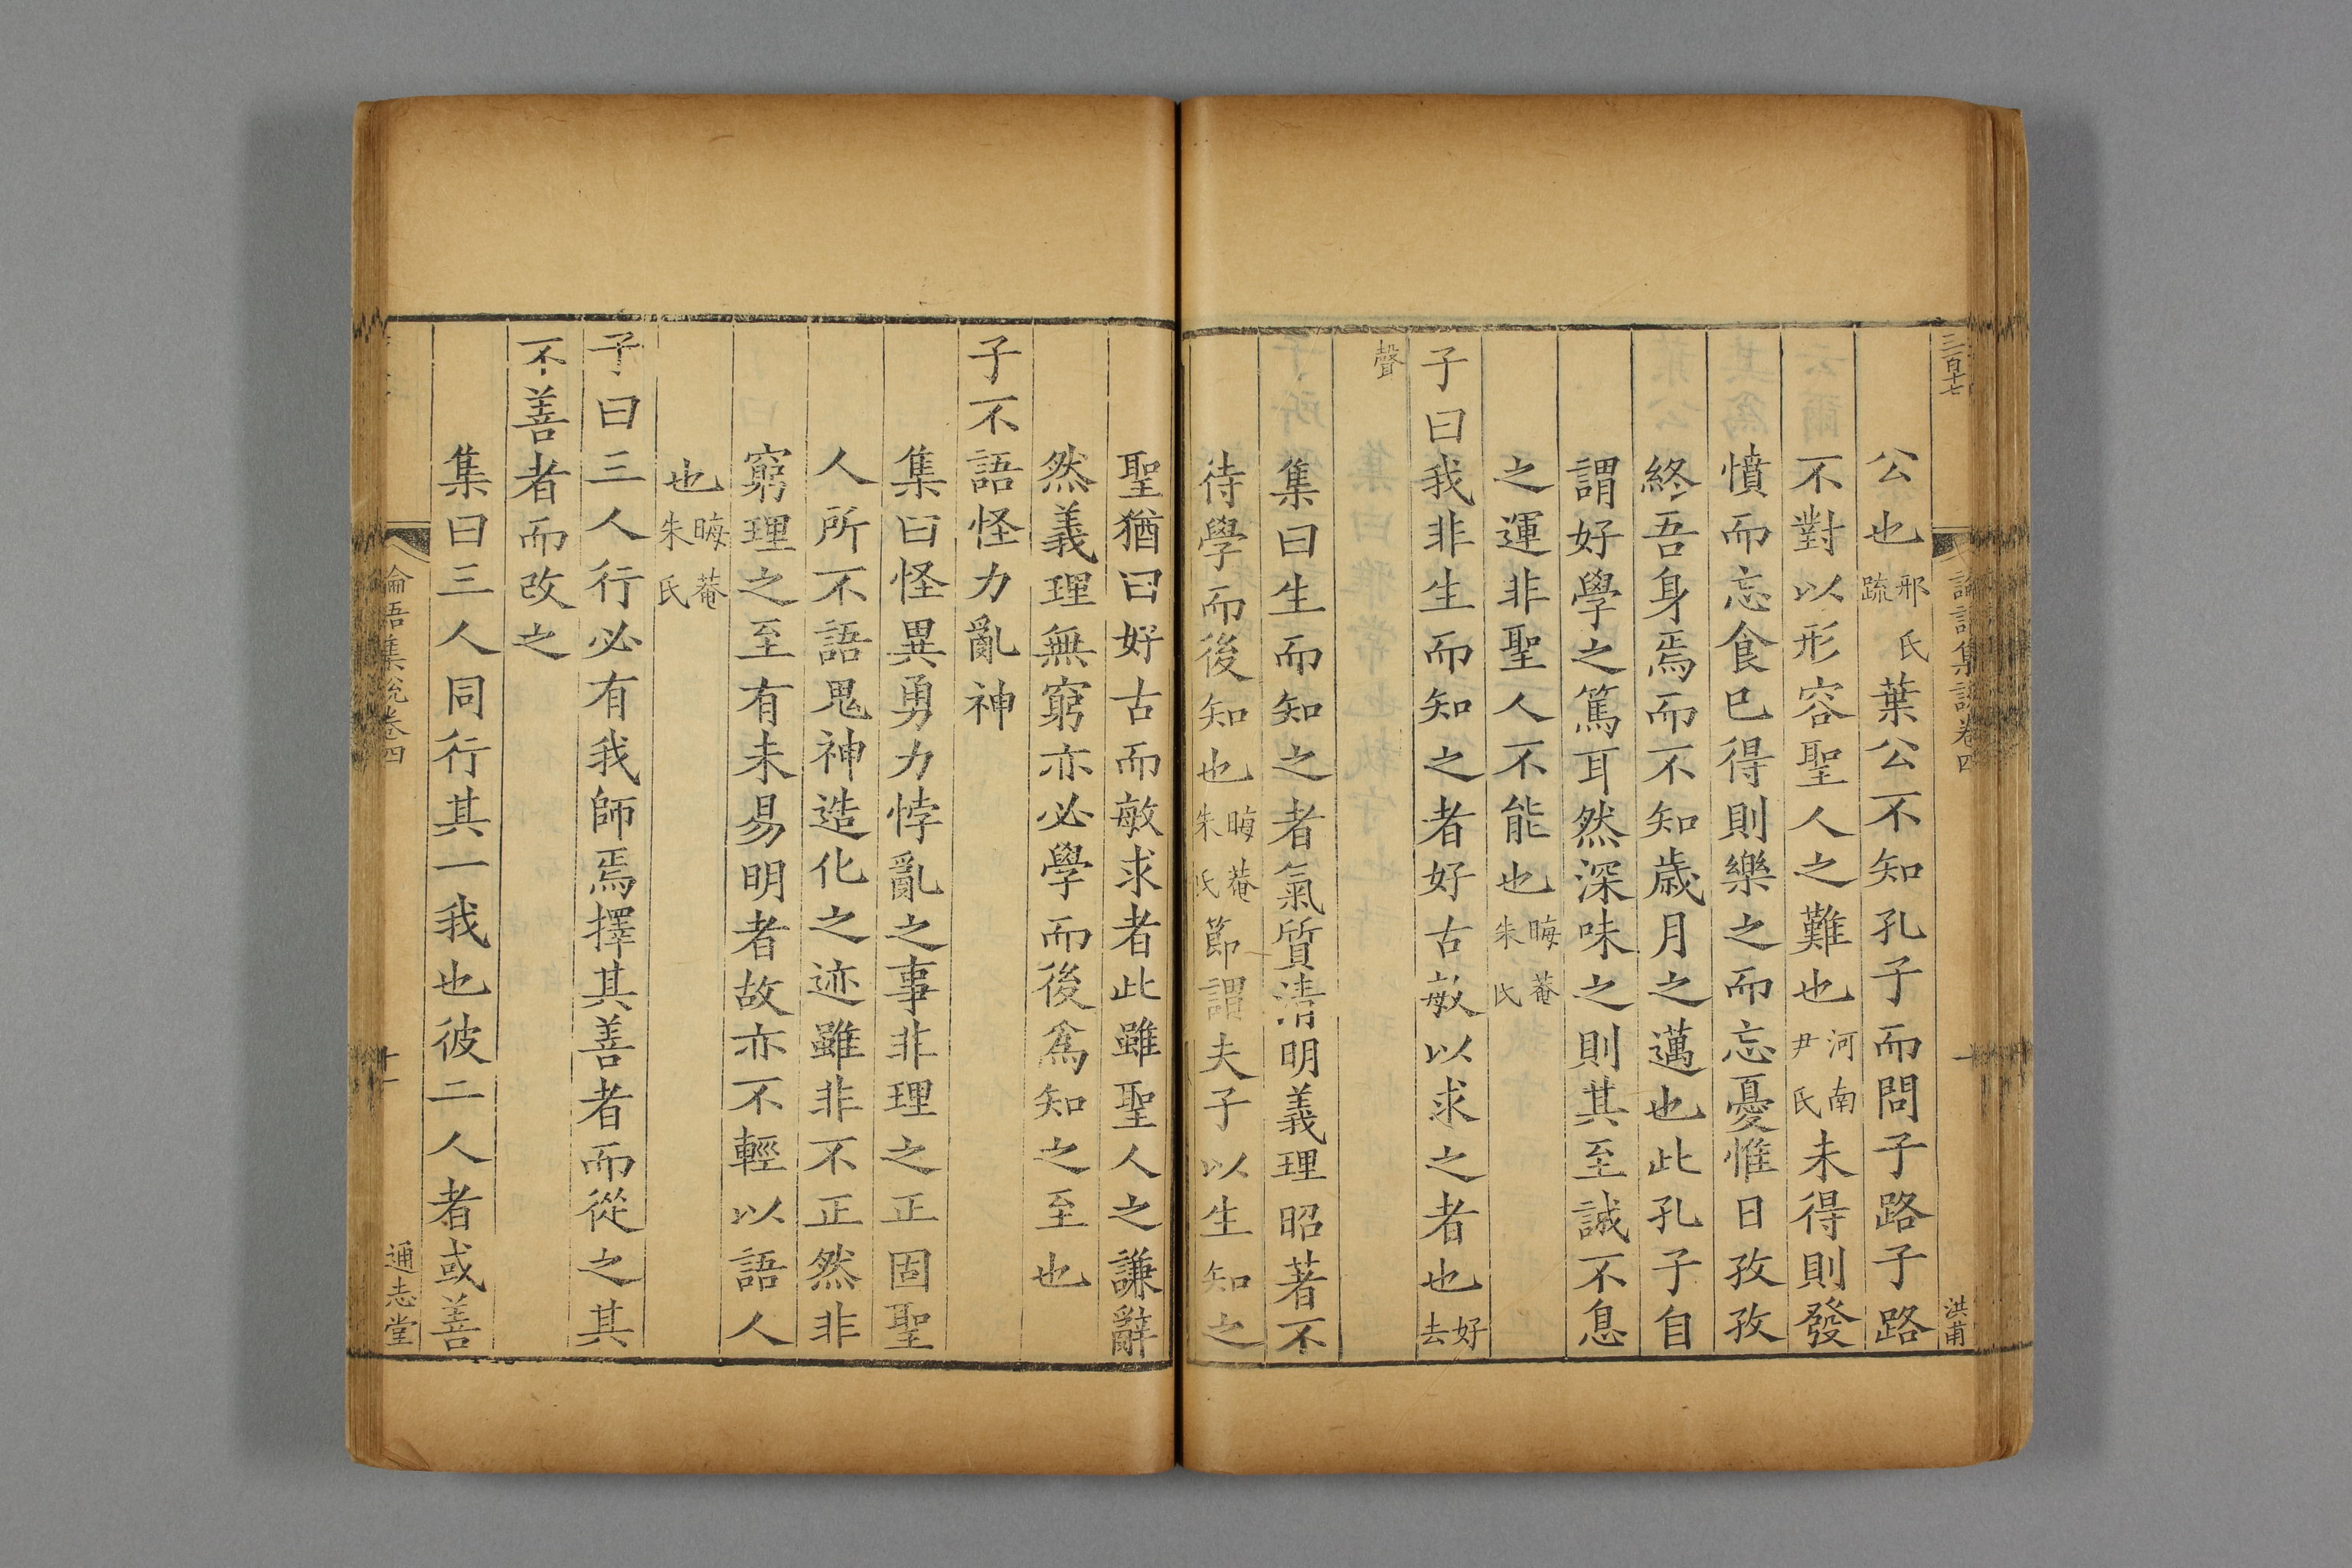 三百十七
論語集說卷四
十
洪甫
公也邢氏疏葉公不知孔子而問子路子路
不對以形容聖人之難也河南尹氏未得則發
憤而忘食已得則樂之而忘憂惟日孜孜
終吾身焉而不知歲月之邁也此孔子自
謂好學之篤耳然深味之則其至誠不息
之運非聖人不能也晦菴朱氏
子曰我非生而知之者好古敏以求之者也好去
聲
集曰生而知之者氣質清明義理昭著不
待學而後知也晦菴朱氏節謂夫子以生知之
聖猶曰好古而敏求者此雖聖人之謙辭
然義理無窮亦必學而後爲知之至也
子不語怪力亂神
集曰怪異勇力悖亂之事非理之正固聖
人所不語鬼神造化之迹雖非不正然非
窮理之至有未易明者故亦不輕以語人
也晦菴朱氏
子曰三人行必有我師焉擇其善者而從之其
不善者而改之
集曰三人同行其一我也彼二人者或善
論語集說卷四
十一
通志堂